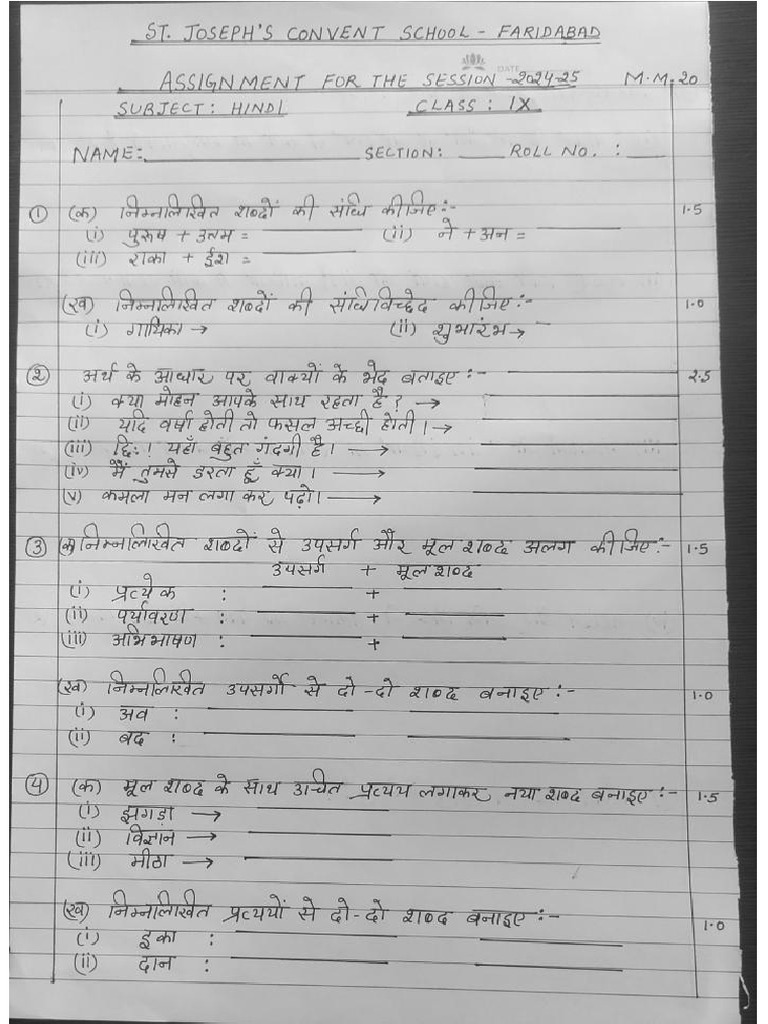 ST. JOSEPH'S CONVENT SCHOOL - FARIDABAD
DATE
ASSIGNMENT FOR THE SESSION - 2024-25 M.M: 20
SUBJECT: HINDI CLASS: IX
NAME: SECTION: ROLL NO. :
① (क) निम्नलिखित शब्दों की संधि कीजिए:- 1.5
(i) पुरुष + उत्तम = (ii) ने + अन =
(iii) राका + ईश =
(ख) निम्नलिखित शब्दों की संधिविच्छेद कीजिए:- 1.0
(i) गायिका → (ii) शुभारंभ →
② अर्थ के आधार पर वाक्यों के भेद बताइए:- 2.5
(i) क्या मोहन आपके साथ रहता है? →
(ii) यदि वर्षा होती तो फसल अच्छी होती। →
(iii) छि:! यहाँ बहुत गंदगी है। →
(iv) मैं तुमसे डरता हूँ क्या। →
(v) कमला मन लगा कर पढ़ो। →
③ (क) निम्नलिखित शब्दों से उपसर्ग और मूल शब्द अलग कीजिए:- 1.5
उपसर्ग + मूल शब्द
(i) प्रत्येक : +
(ii) पर्यावरण : +
(iii) अभिभाषण : +
(ख) निम्नलिखित उपसर्गो से दो-दो शब्द बनाइए:- 1.0
(i) अव :
(ii) बद :
④ (क) मूल शब्द के साथ उचित प्रत्यय लगाकर नया शब्द बनाइए:- 1.5
(i) झगड़ा →
(ii) विज्ञान →
(iii) मीठा →
(ख) निम्नलिखित प्रत्ययों से दो-दो शब्द बनाइए:- 1.0
(i) इका :
(ii) दान :